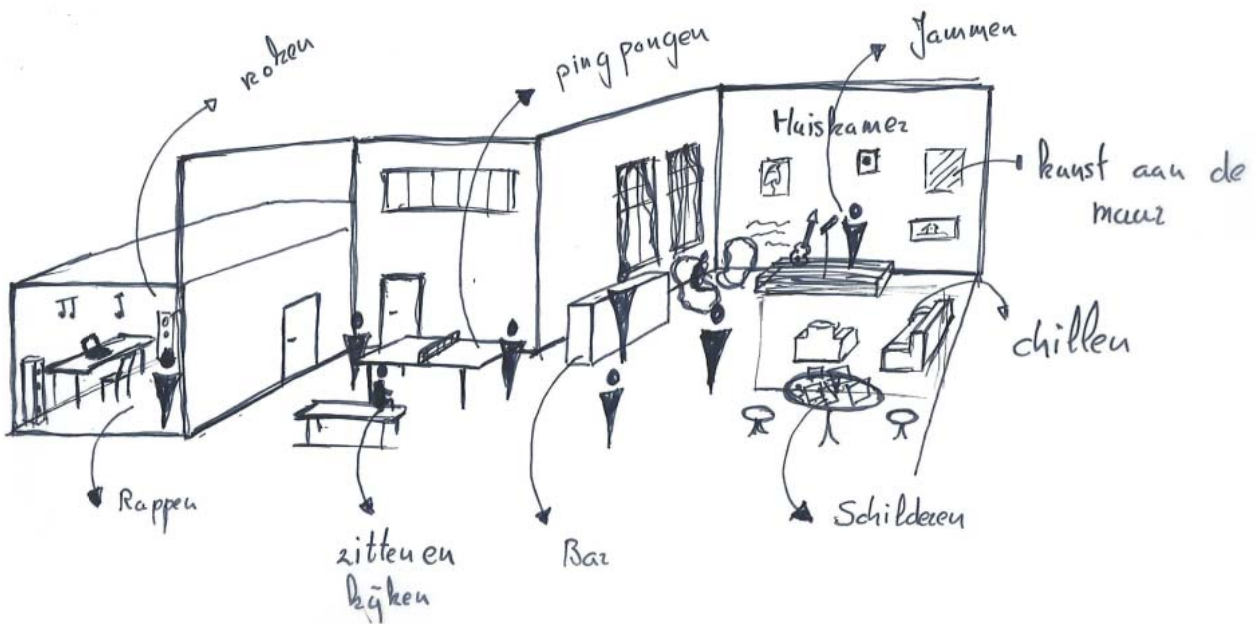 roken
pingpongen
Jammen
Huiskamer
kunst aan de
muur
chillen
Rappen
zitten en
kijken
Bar
Schilderen